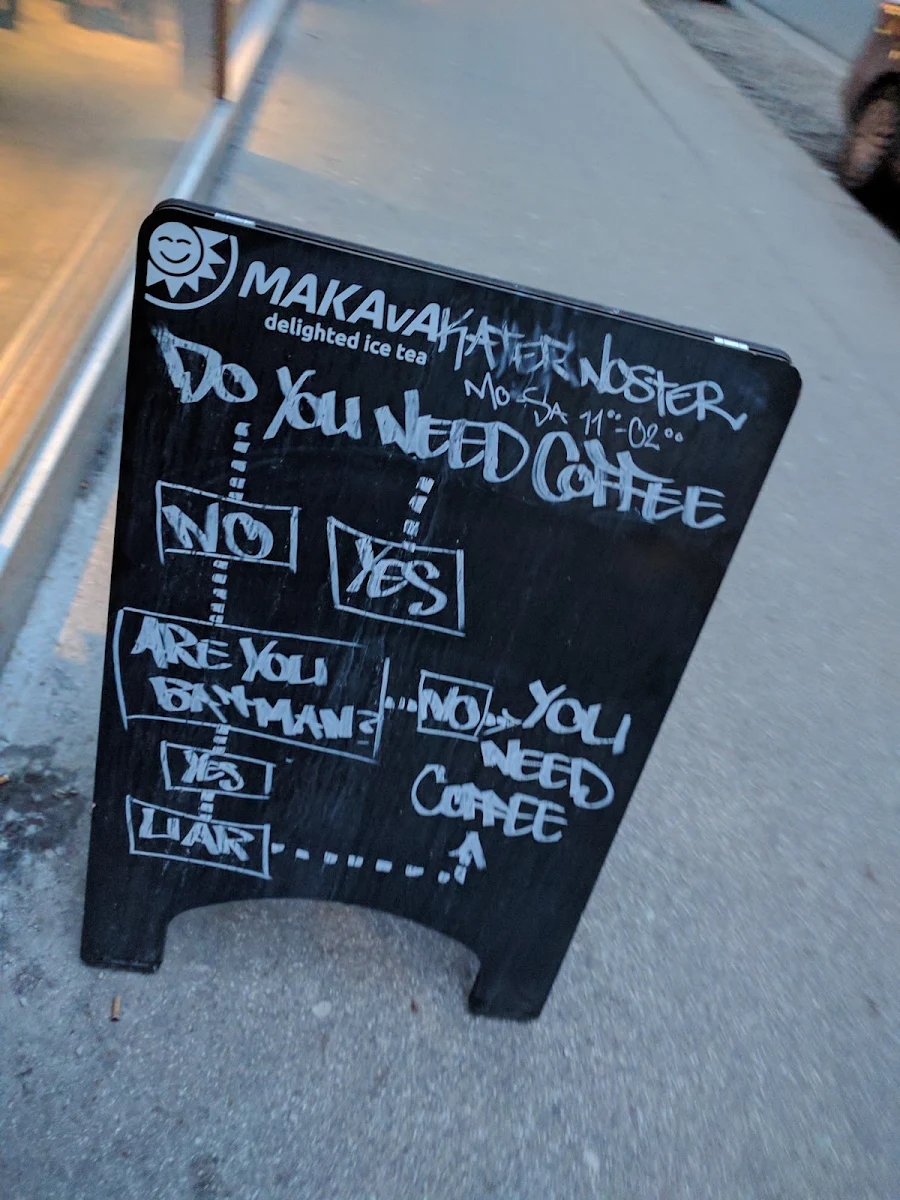 MAKAvA
delighted ice tea
KATER NOSTER
MO-SA 11⁰⁰-02⁰⁰
DO YOU NEED COFFEE
NO
YES
ARE YOU
BATMAN?
NO
YOU
NEED
COFFEE
YES
LIAR